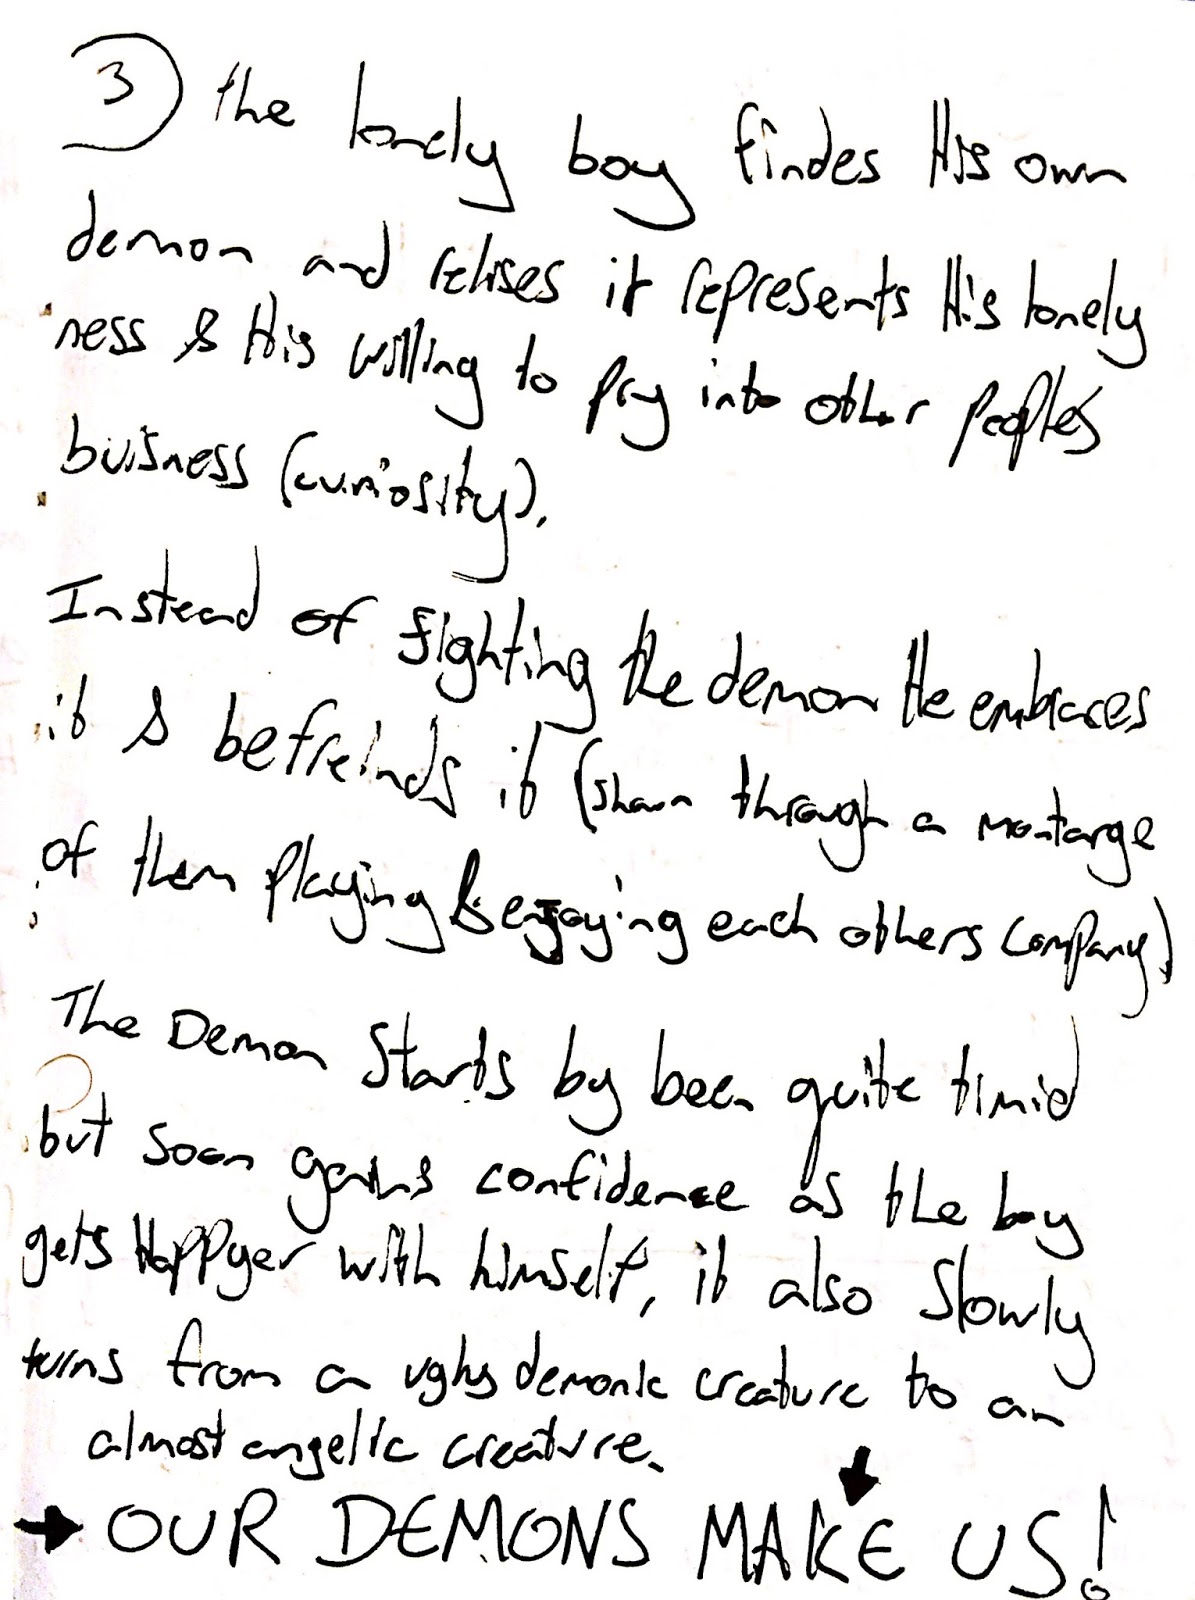 3 the lonely boy findes His own
demon and relises it represents His lonely
ness & His willing to pry into other peoples
buisness (curiosity).
Instead of fighting the demon He embraces
it & befreinds it (shown through a montarge
of them playing & enjoying each others company)
The Demon Starts by been quite timid
but soon gains confidence as the boy
gets Happyer with himself, it also slowly
turns from a ugly demonic creature to an
almost angelic creature.
→ OUR DEMONS MAKE US!